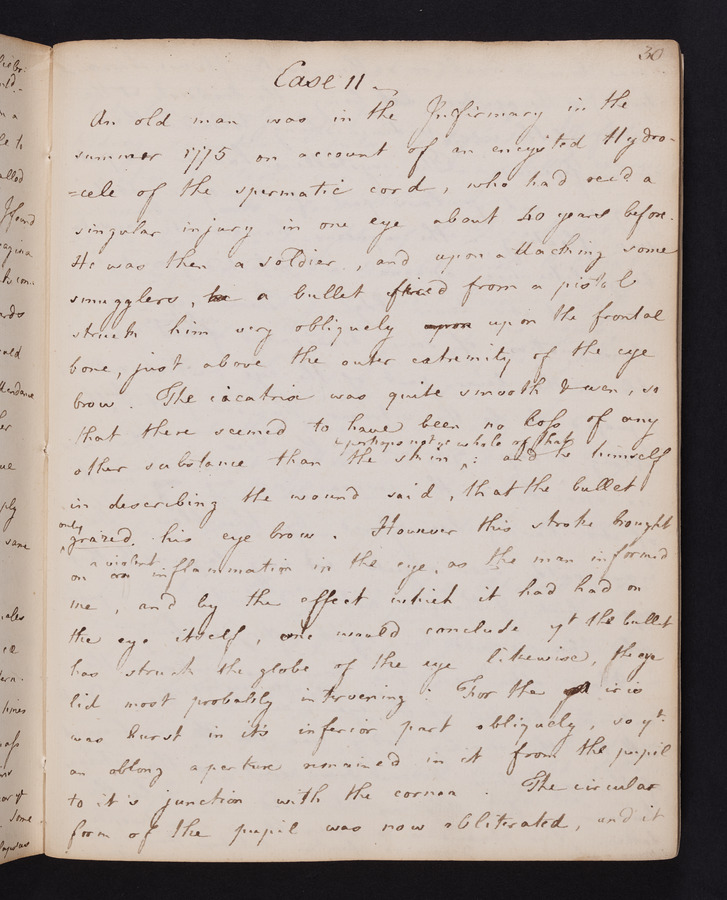 30
Case 11
An old man was in the Infirmary in the
summer 1775 on account of an encysted Hydro-
=cele of the spermatic cord, who had recd. a
singular injury in one eye about 40 years before.
He was then a soldier, and upon attacking some
smugglers, a bullet fired from a pistol
struck him very obliquely upon upon the frontal
bone, just above the outer extremity of the eye
brow. The cicatrix was quite smooth & even, so
that there seemed to have been no loss of any
& perhaps not ye whole of that
other substance than the skin; and he himself
in describing the wound said, that the bullet
only
grazed his eye brow. However this stroke brought
a violent
on inflammation in the eye, as the man informed
me, and by the effect which it had had on
the eye itself, one would conclude yt the bullet
has struck the globe of the eye likewise, the eye
lid most probably intervening: For the iris
was burst in it's inferior part obliquely, so yt.
an oblong aperture remained in it from the pupil
to it's junction with the cornea. The circular
form of the pupil was now obliterated, and it